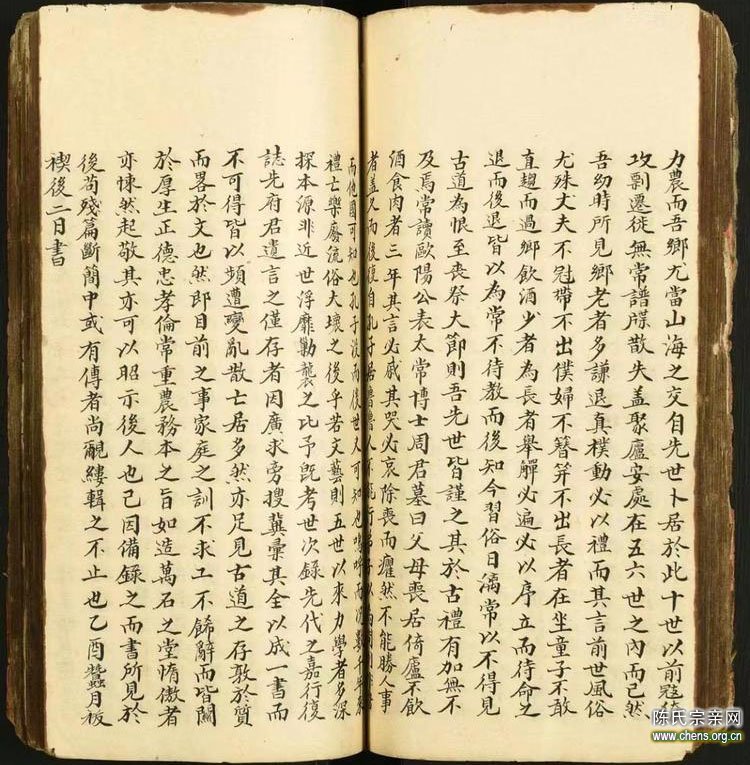 力農而吾鄉尤當山海之交自先世卜居於此十世以前冦
攻剽遷徙無常譜牒散失盖聚廬安處在五六世之内而已然
吾幼時所見鄉老者多謙退真樸動必以禮而其言前世風俗
尤殊丈夫不冠帶不出僕婦不簪笄不出長者在坐童子不敢
直趨而過鄉飲酒少者為長者舉觶必遍必以序立而待命之
退而後退皆以為常不待教而後知今習俗日漓常以不得見
古道為恨至喪祭大節則吾先世皆謹之其於古禮有加無不
及焉常讀歐陽公表太常博士周君墓曰父母喪居倚廬不飲
酒食肉者三年其言必戚其哭必哀除喪而癯然不能勝人事
者盖久而後復自孔子居魯魯人不能行
而他國可知也孔子没而後世人可知也
禮亡樂廢流俗大壞之後乎若文藝則五世以來力學者多深
探本源非近世浮靡勦襲之比予既考世次錄先代之嘉行復
誌先府君遺言之僅存者因廣求旁搜冀彙其全以成一書而
不可得皆以頻遭變亂散亡居多然亦足見古道之存敦於質
而畧於文也然即目前之事家庭之訓不求工不餙辭而皆關
於厚生正德忠孝倫常重農務本之旨如造萬石之堂惰傲者
亦悚然起敬其亦可以昭示後人也已因備錄之而書所見於
後苟殘篇斷簡中或有傳者尚覼縷輯之不止也乙酉蠶月祓
禊後二日書
陈氏宗亲网
www.chens.org.cn